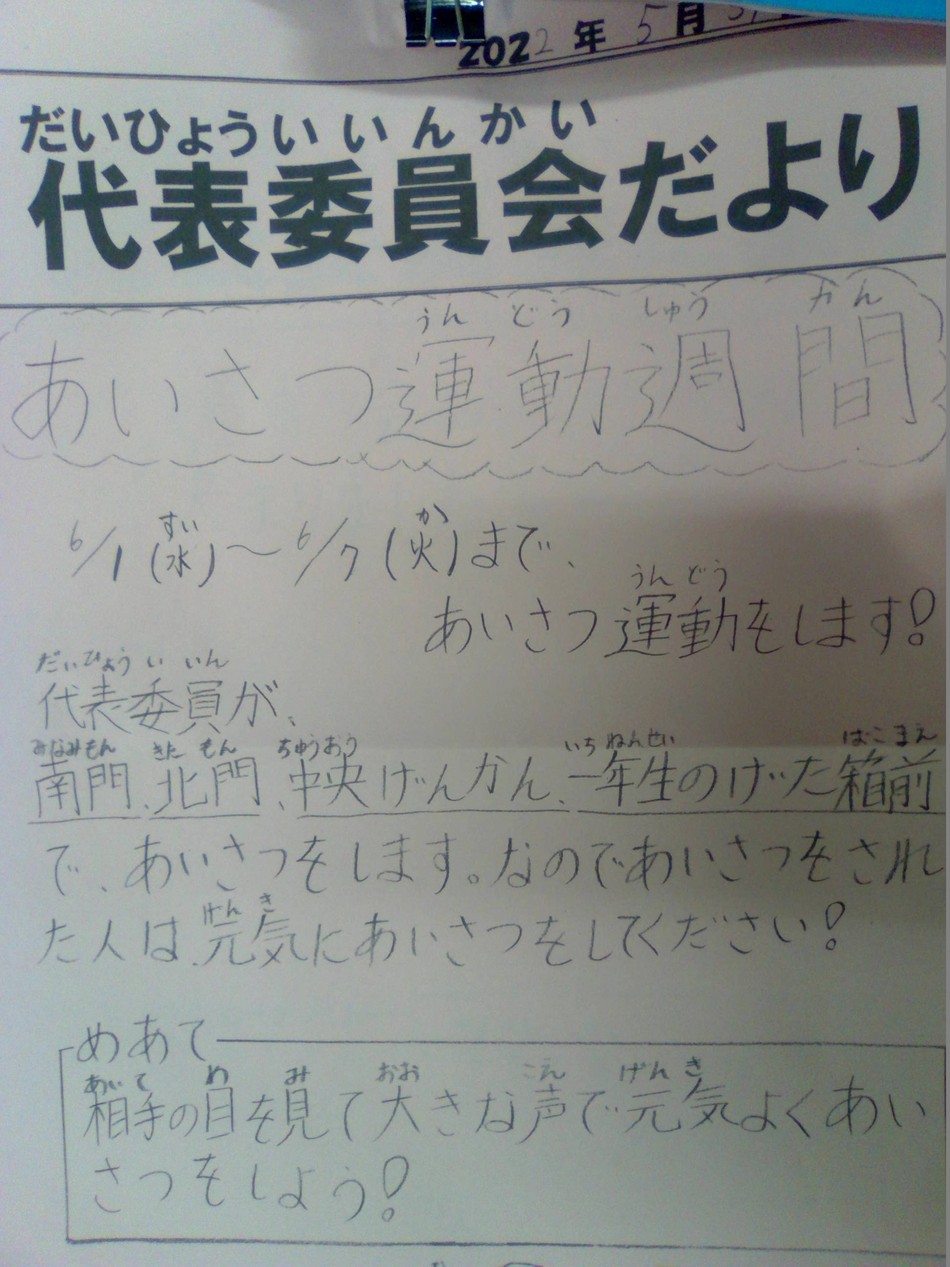 2022年5月31
だいひょういいんかい
代表委員会だより
うんどうしゅうかん
あいさつ運動週間
すい か
6/1(水)〜6/7(火)まで、
うんどう
あいさつ運動をします!
だいひょういいん
代表委員が、
みなみもん きたもん ちゅうおう いちねんせい ばこまえ
南門、北門、中央げんかん、一年生のげた箱前
で、あいさつをします。なのであいさつをされ
げんき
た人は、元気にあいさつをしてください!
めあて
あいて め み おお こえ げんき
相手の目を見て大きな声で元気よくあい
さつをしよう!